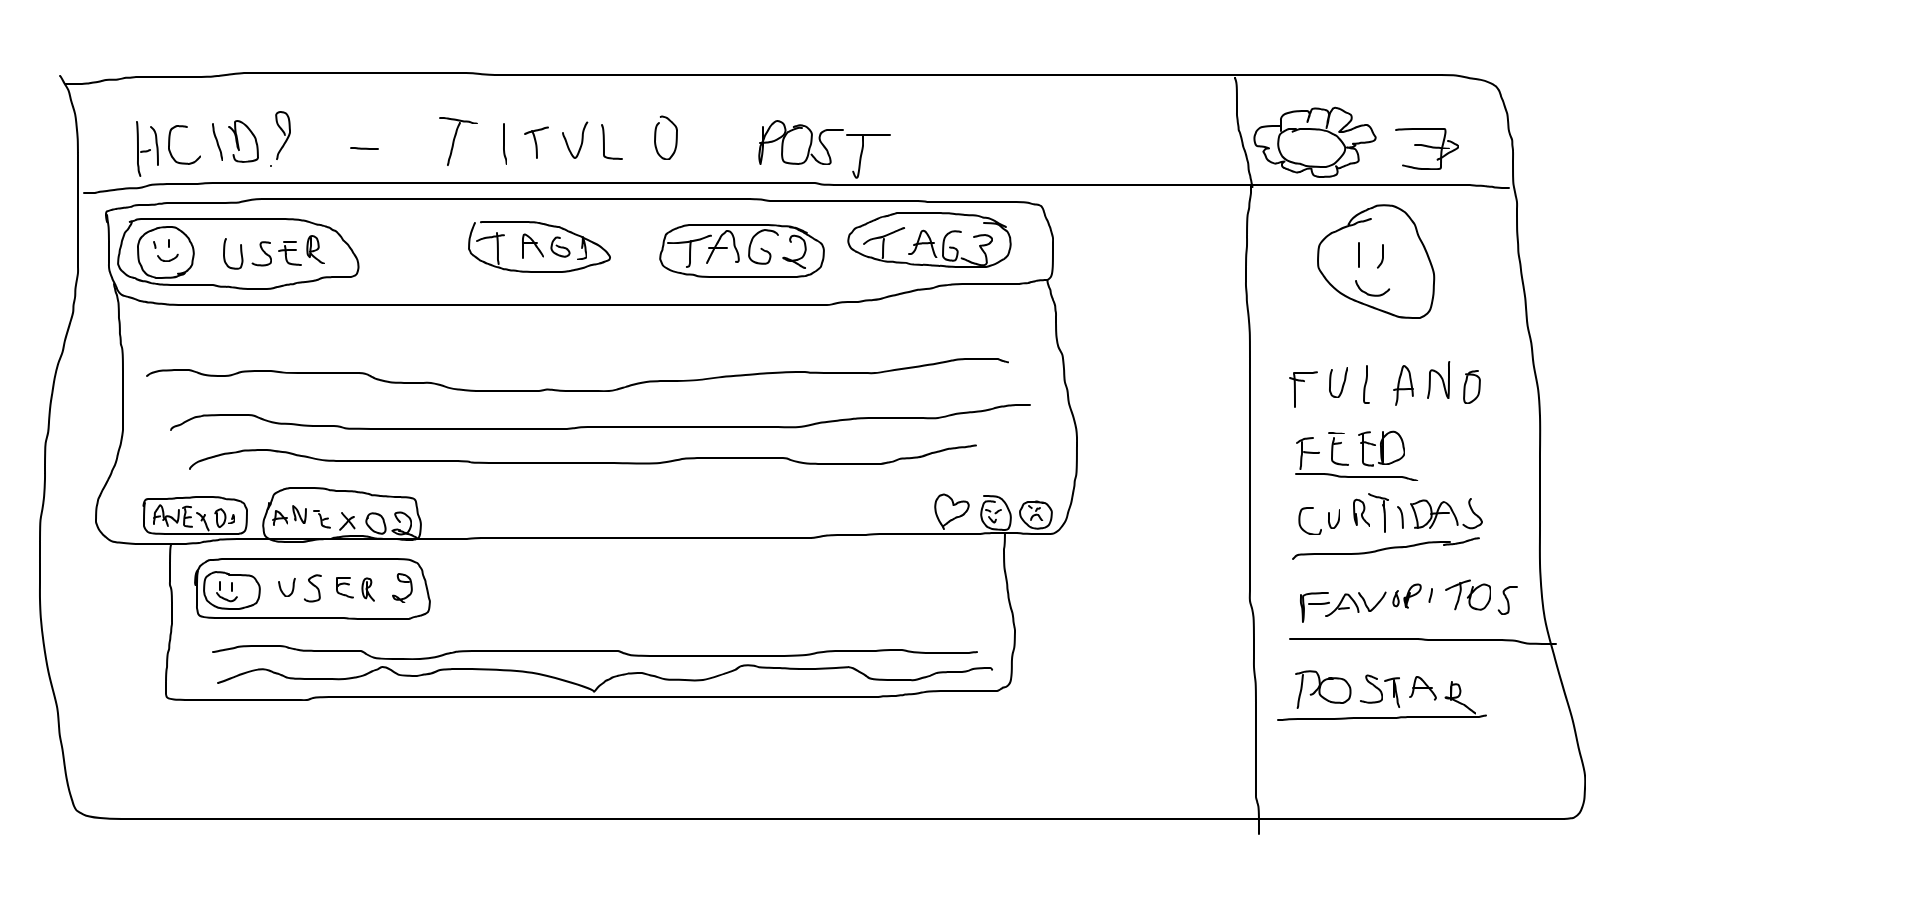 HCID? - TITULO POST
USER TAG1 TAG2 TAG3
ANEXO1 ANEXO2
USER 2
FULANO
FEED
CURTIDAS
FAVORITOS
POSTAR